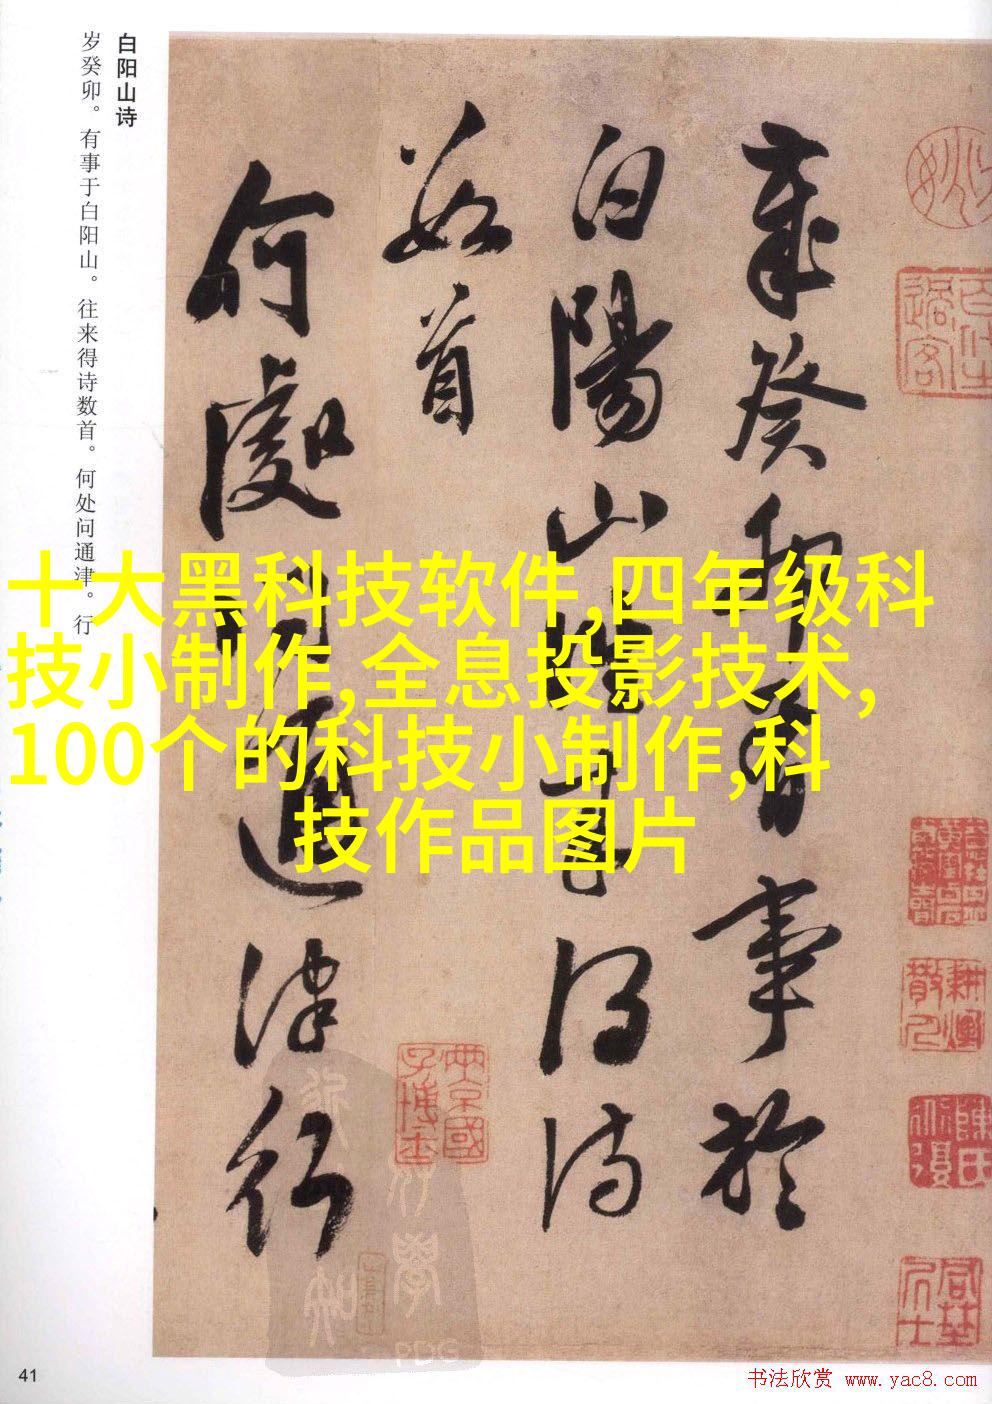 白阳山诗
岁癸卯。有事于白阳山。往来得诗数首。何处问通津。行
歲癸卯有事於
白陽山往來得詩
數首
何處問通津行
十大黑科技软件,四年级科
技小制作,全息投影技术,
100个的科技小制作,科
技作品图片
41
书法欣赏 www.yac8.com
PDG